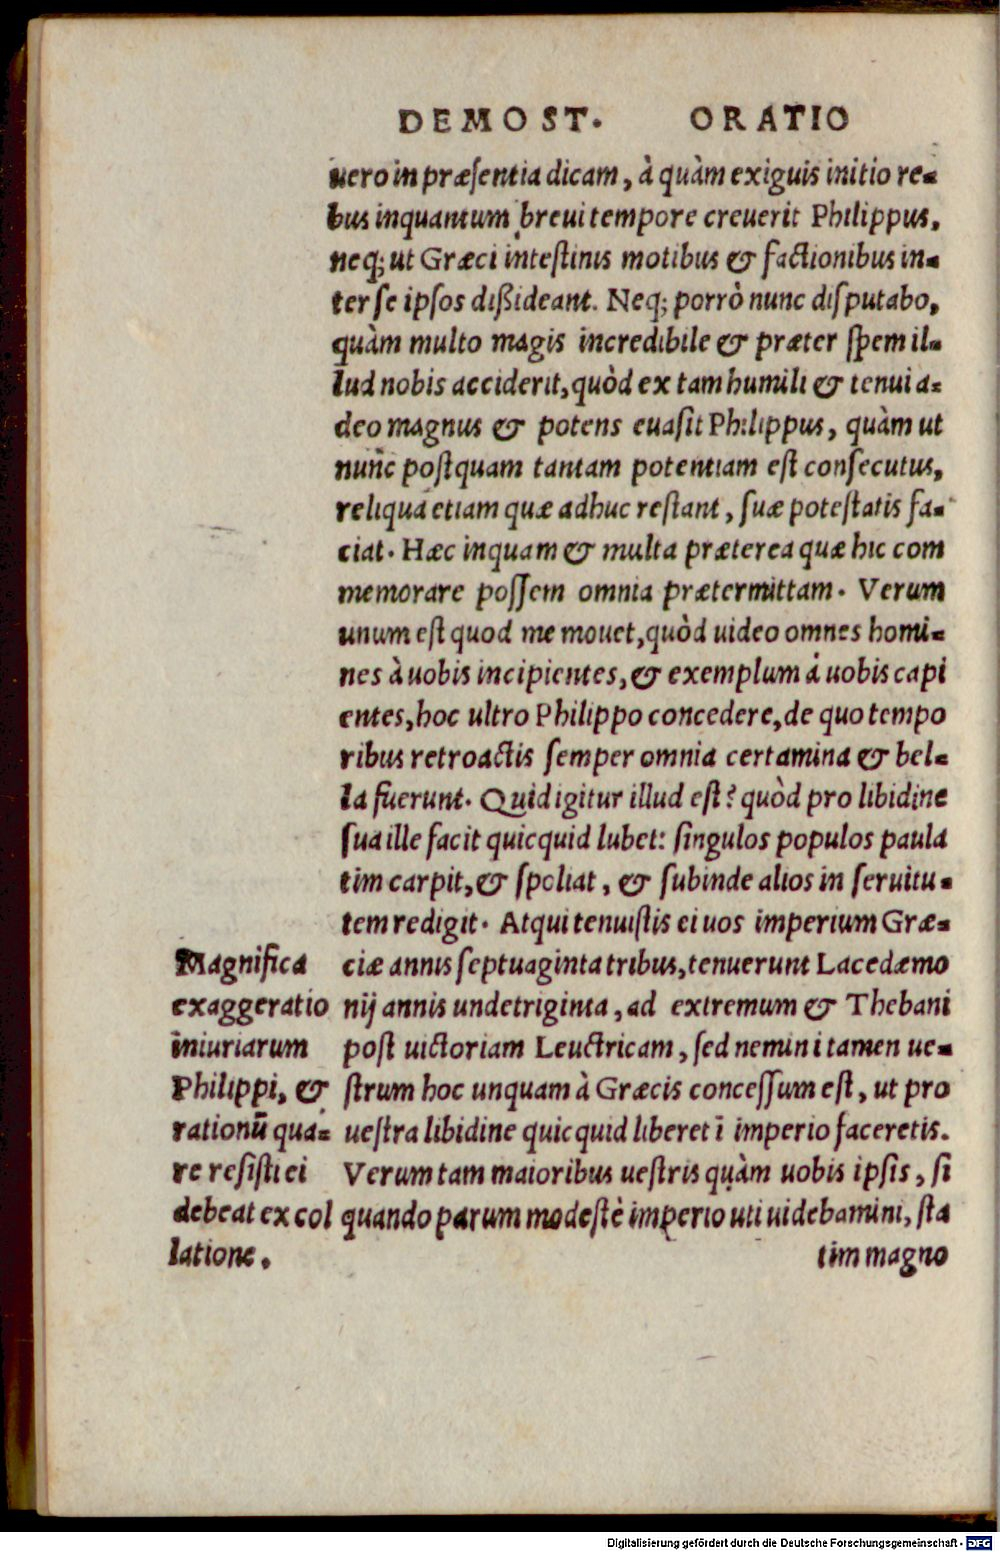 DEMOST. ORATIO
uero in præsentia dicam, à quàm exiguis initio re-
bus inquantum breui tempore creuerit Philippus,
neq; ut Græci intestinis motibus & factionibus in-
ter se ipsos dißideant. Neq; porrò nunc disputabo,
quàm multo magis incredibile & præter spem il-
lud nobis acciderit, quòd ex tam humili & tenui a-
deo magnus & potens euasit Philippus, quàm ut
nunc postquam tantam potentiam est consecutus,
reliqua etiam quæ adhuc restant, suæ potestatis fa-
ciat. Hæc inquam & multa præterea quæ hic com
memorare possem omnia prætermittam. Verum
unum est quod me mouet, quòd uideo omnes homi-
nes à uobis incipientes, & exemplum á uobis capi
entes, hoc ultro Philippo concedere, de quo tempo
ribus retroactis semper omnia certamina & bel-
la fuerunt. Quid igitur illud est? quòd pro libidine
sua ille facit quicquid lubet: singulos populos paula
tim carpit, & spoliat, & subinde alios in seruitu-
tem redigit. Atqui tenuistis ei uos imperium Græ-
ciæ annis septuaginta tribus, tenuerunt Lacedæmo
nij annis undetriginta, ad extremum & Thebani
post uictoriam Leuctricam, sed nemini tamen ue-
strum hoc unquam à Græcis concessum est, ut pro
uestra libidine quicquid liberet ī imperio faceretis.
Verum tam maioribus uestris quàm uobis ipsis, si
quando parum modestè imperio uti uidebamini, sta
tim magno
Magnifica
exaggeratio
iniuriarum
Philippi, &
rationū qua-
re resisti ei
debeat ex col
latione.
Digitalisierung gefördert durch die Deutsche Forschungsgemeinschaft - DFG